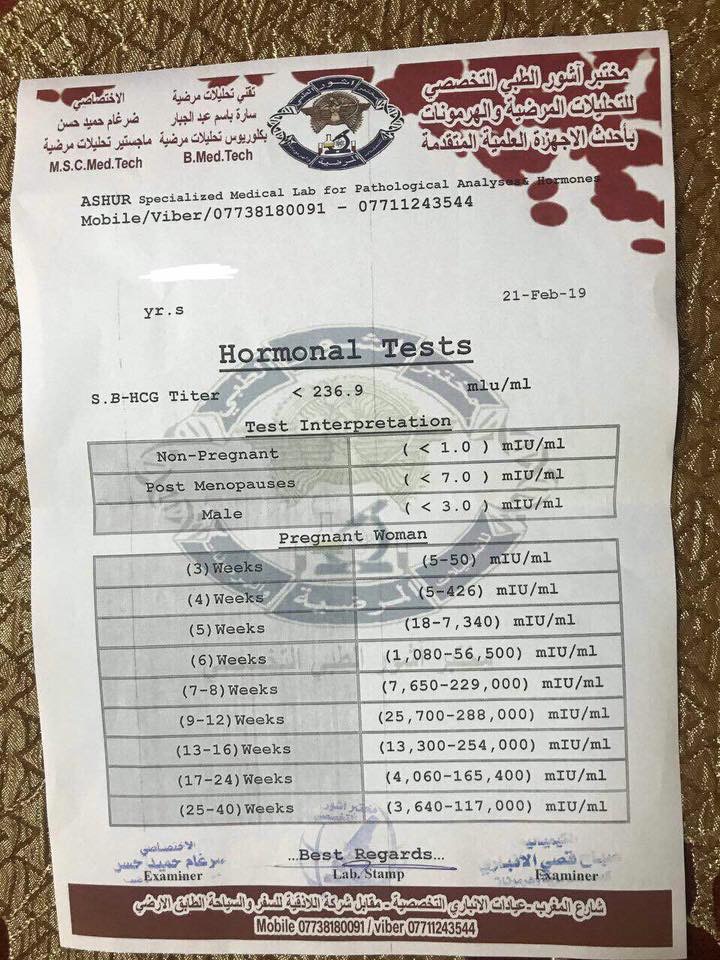 مختبر آشور الطبي التخصصي
للتحليلات المرضية والهرمونات
بأحدث الاجهزة العلمية المتقدمة
تقني تحليلات مرضية
سارة باسم عبد الجبار
بكلوريوس تحليلات مرضية
B.Med.Tech
الاختصاصي
ضرغام حميد حسن
ماجستير تحليلات مرضية
M.S.C.Med.Tech
ASHUR Specialized Medical Lab for Pathological Analyses& Hormones
Mobile/Viber/07738180091 – 07711243544
21-Feb-19
yr.s
Hormonal Tests
S.B-HCG Titer < 236.9 mlu/ml
Test Interpretation
Non-Pregnant ( < 1.0 ) mIU/ml
Post Menopauses ( < 7.0 ) mIU/ml
Male ( < 3.0 ) mIU/ml
Pregnant Woman
(3) Weeks (5-50) mIU/ml
(4) Weeks (5-426) mIU/ml
(5) Weeks (18-7,340) mIU/ml
(6) Weeks (1,080-56,500) mIU/ml
(7-8) Weeks (7,650-229,000) mIU/ml
(9-12) Weeks (25,700-288,000) mIU/ml
(13-16) Weeks (13,300-254,000) mIU/ml
(17-24) Weeks (4,060-165,400) mIU/ml
(25-40) Weeks (3,640-117,000) mIU/ml
مختبر اشور
الاختصاصي
ضرغام حميد حسن
Examiner
...Best Regards...
Lab.Stamp
قصي الانباري
Examiner
شارع المغرب - عيادات الانباري التخصصية - مقابل شركة اللاذقية للسفر والسياحة الطابق الارضي
Mobile 07738180091 / viber 07711243544